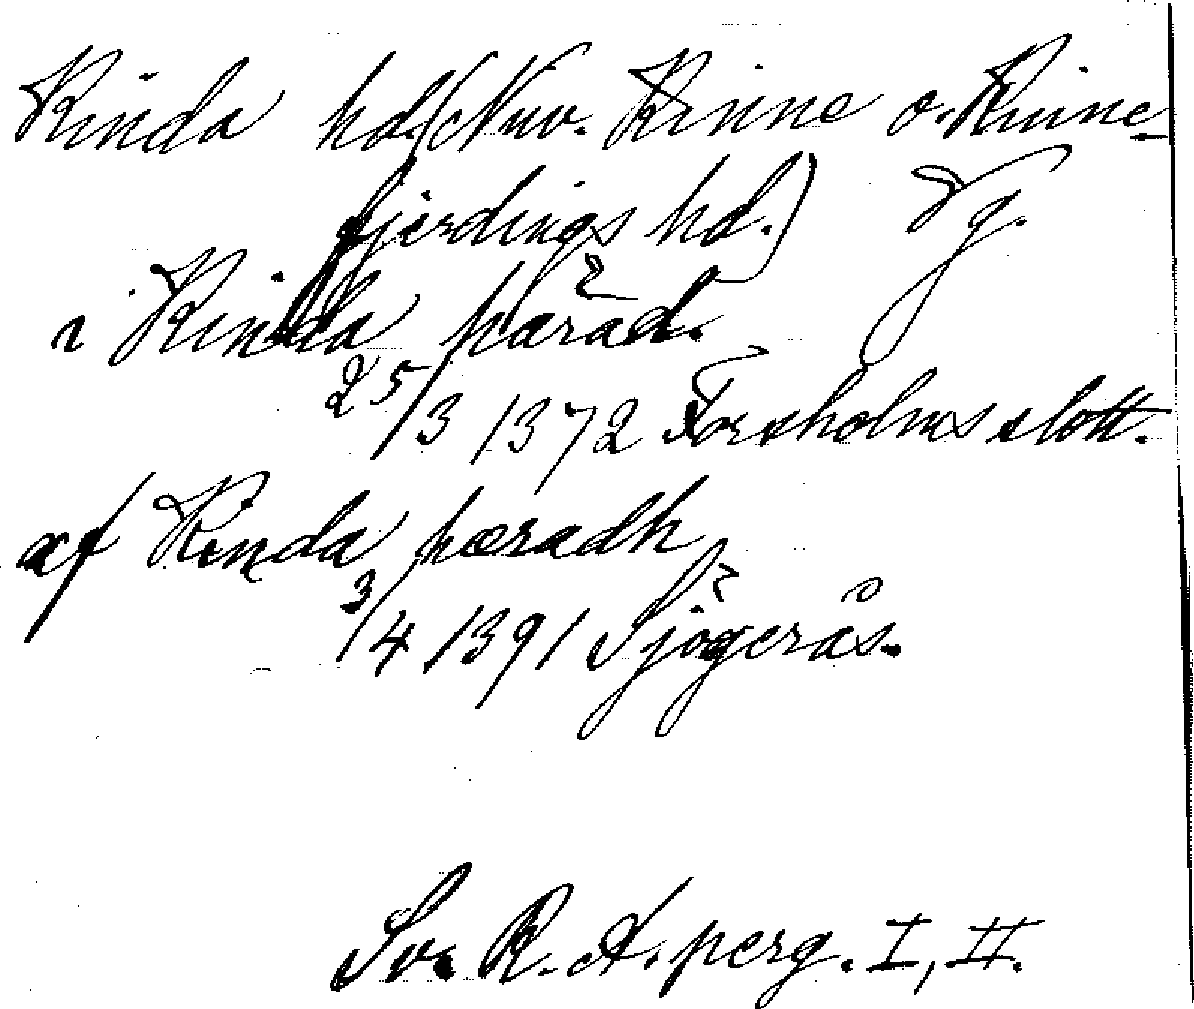 Kinda hd. (Nuv. Kinne o. Kinne-
fjerdings hd.) Vg.
i Kinda hærad.
25/3 1372 Forsholms slott.
af Kinda hæradh
3/4 1391 Sjögerås.
Sv. R. A. perg. I, II.